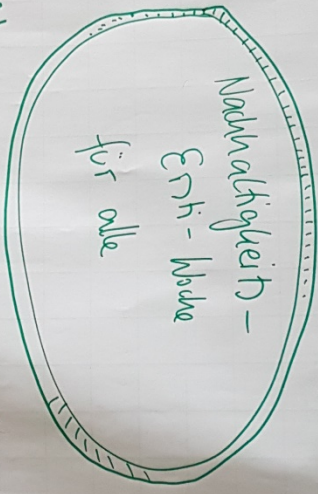 Nachhaltigkeits-
Ersti-Woche
für alle